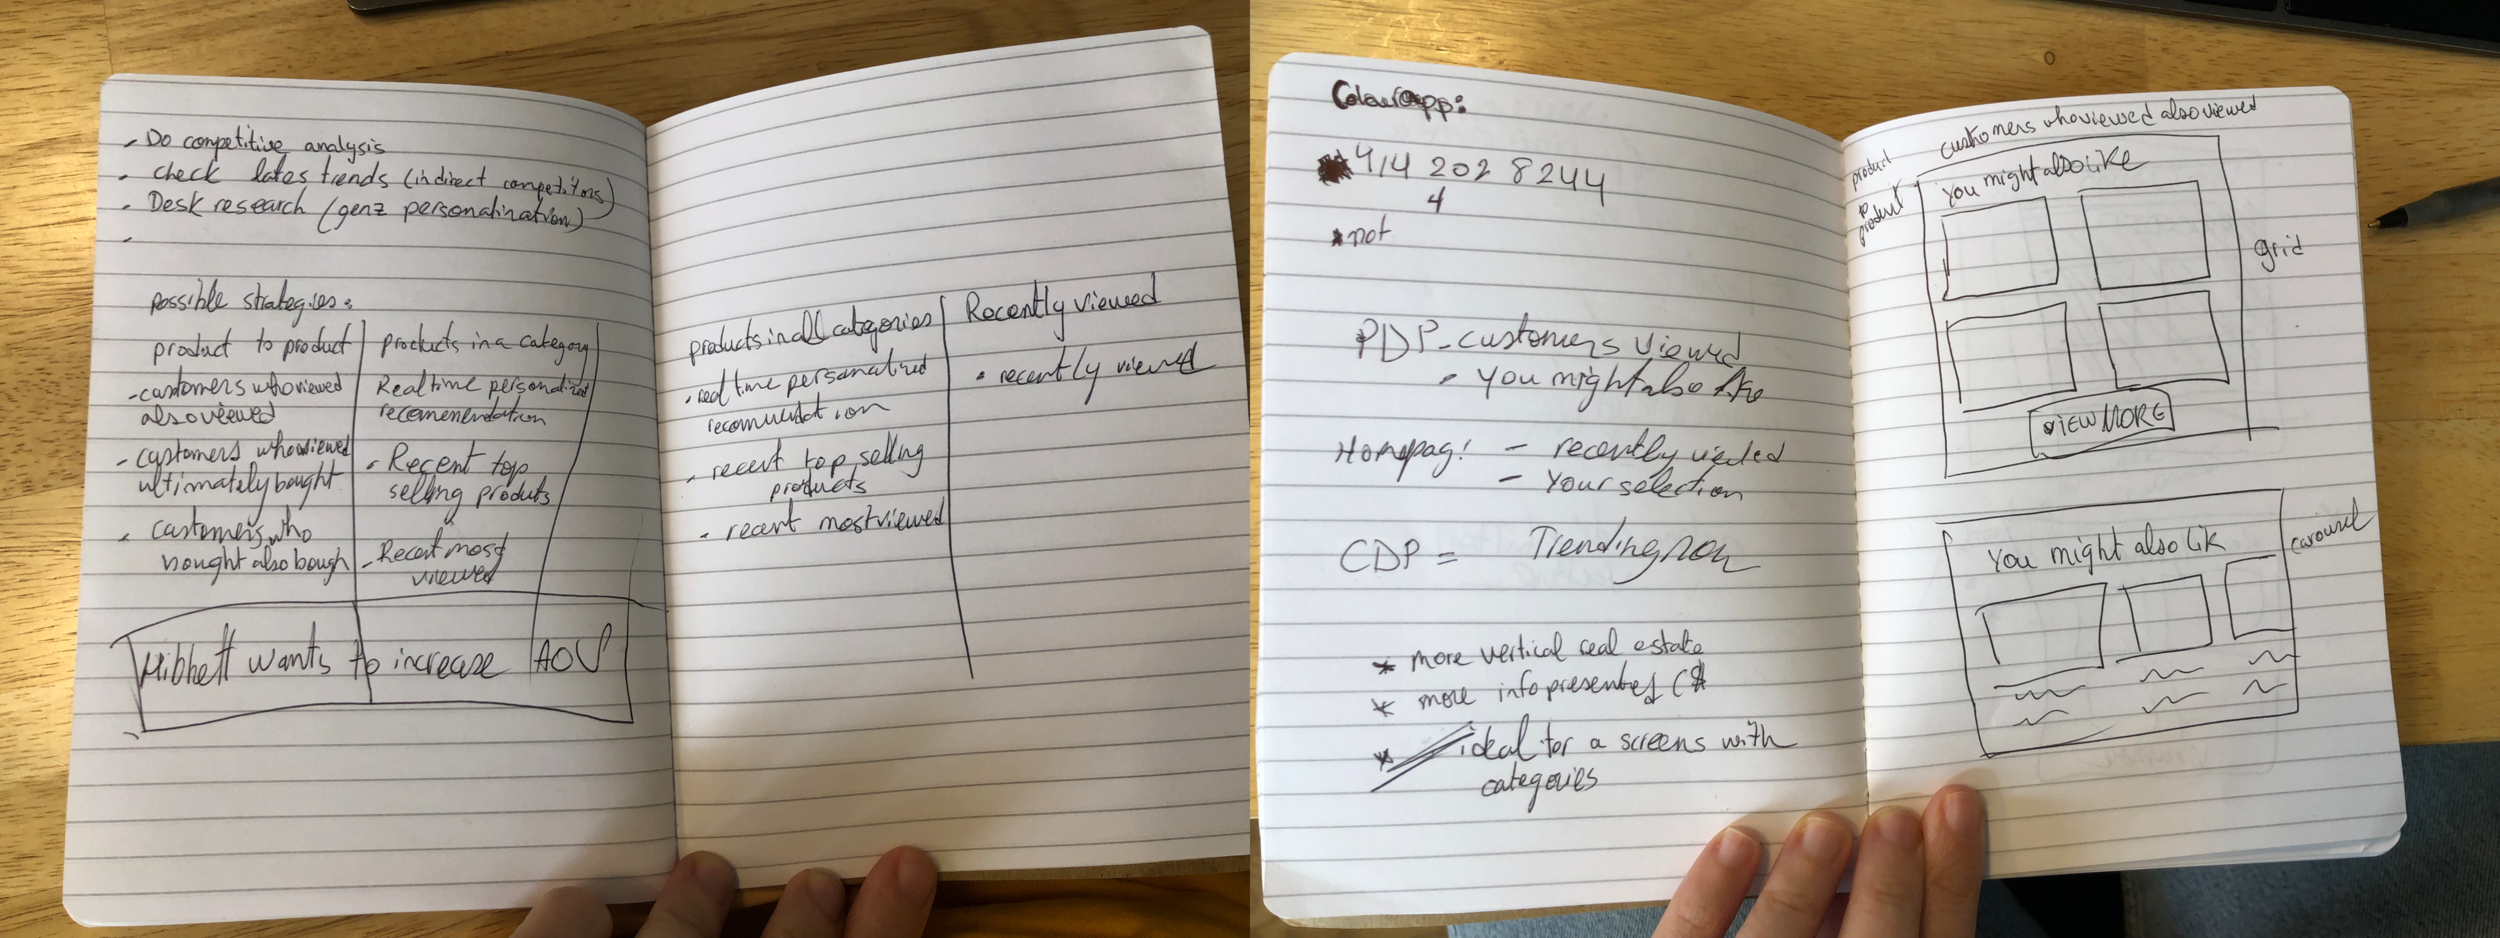 - Do competitive analysis
. check lates trends (indirect competitors)
. Desk research (genz personalination)
-
possible strategies:
product to product
- customers who viewed
also viewed
- customers who viewed
ultimately bought
. customers who
bought also bough
products in a category
Real time personalized
recomenendation
. Recent top
selling products
- Recent most
viewed
Hibbett wants to increase AOV
products in all categories
. real time personalized
. recent top selling
products
. recent most viewed
Recently viewed
. recently viewed
* 414 202 8244
4
* not
PDP - customers viewed
. you might also like
Homepag: - recently viewed
- Your selection
CDP = Trending now
* more vertical real estate
* more info presented
* ideal for a screens with
categories
customers who viewed also viewed
product
to
product
You might also like
VIEW MORE
grid
You might also lik
carousel